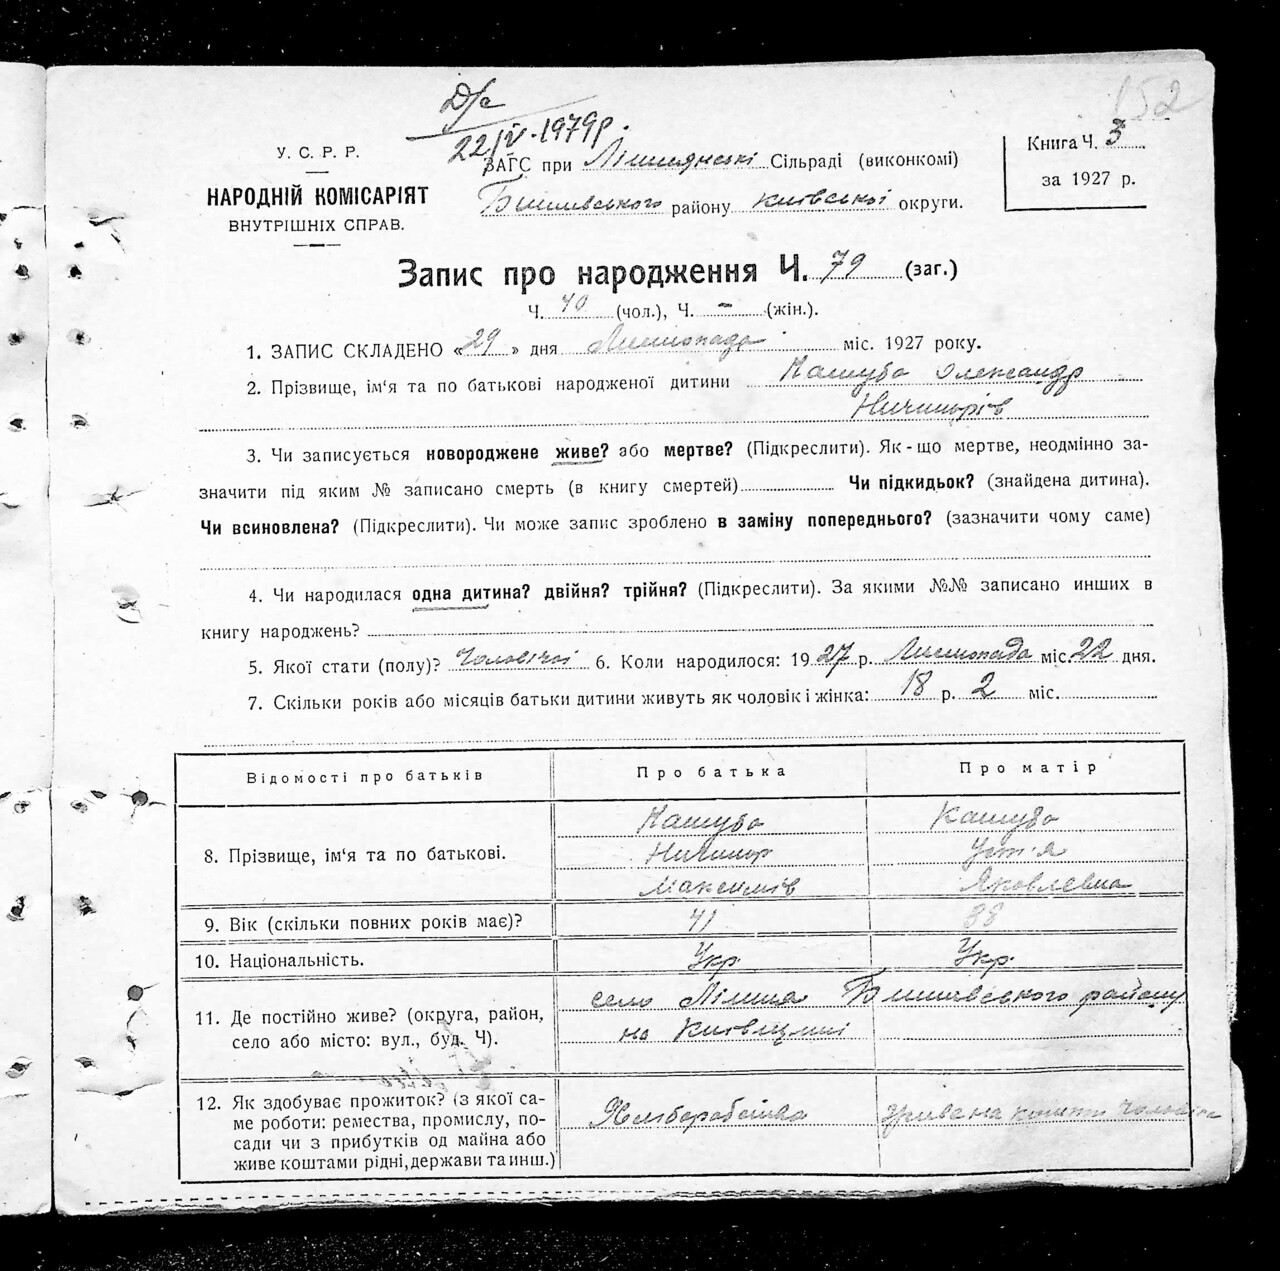 152
Д/с
22/IV-1979р.
У. С. Р. Р.
НАРОДНІЙ КОМІСАРІЯТ
ВНУТРІШНІХ СПРАВ.
ЗАГС при Сільраді (виконкомі)
Бишівського району Київської округи.
Книга Ч. 3
за 1927 р.
Запис про народження Ч. 79 (заг.)
Ч. 40 (чол.), Ч. – (жін.).
1. ЗАПИС СКЛАДЕНО «29» дня Листопада міс. 1927 року.
2. Прізвище, ім'я та по батькові народженої дитини Кашуба Олександр
Ничипорів
3. Чи записується новороджене живе? або мертве? (Підкреслити). Як-що мертве, неодмінно за-
значити під яким № записано смерть (в книгу смертей) Чи підкидьок? (знайдена дитина).
Чи всиновлена? (Підкреслити). Чи може запис зроблено в заміну попереднього? (зазначити чому саме)
4. Чи народилася одна дитина? двійня? трійня? (Підкреслити). За якими №№ записано инших в
книгу народжень?
5. Якої стати (полу)? Чоловічої 6. Коли народилося: 1927 р. Листопада міс. 22 дня.
7. Скільки років або місяців батьки дитини живуть як чоловік і жінка: 18 р. 2 міс.
Відомості про батьків Про батька Про матір
8. Прізвище, ім'я та по батькові.
Кашуба Кашуба
Ничипор Уст'я
Максимів Яковлевна
9. Вік (скільки повних років має)? 41 38
10. Національність. Укр. Укр.
11. Де постійно живе? (округа, район,
село або місто: вул., буд. Ч).
село Лішня Бишівського району
на Київщині
12. Як здобуває прожиток? (з якої са-
ме роботи: ремества, промислу, по-
сади чи з прибутків од майна або
живе коштами рідні, держави та инш.)
Хліборобство